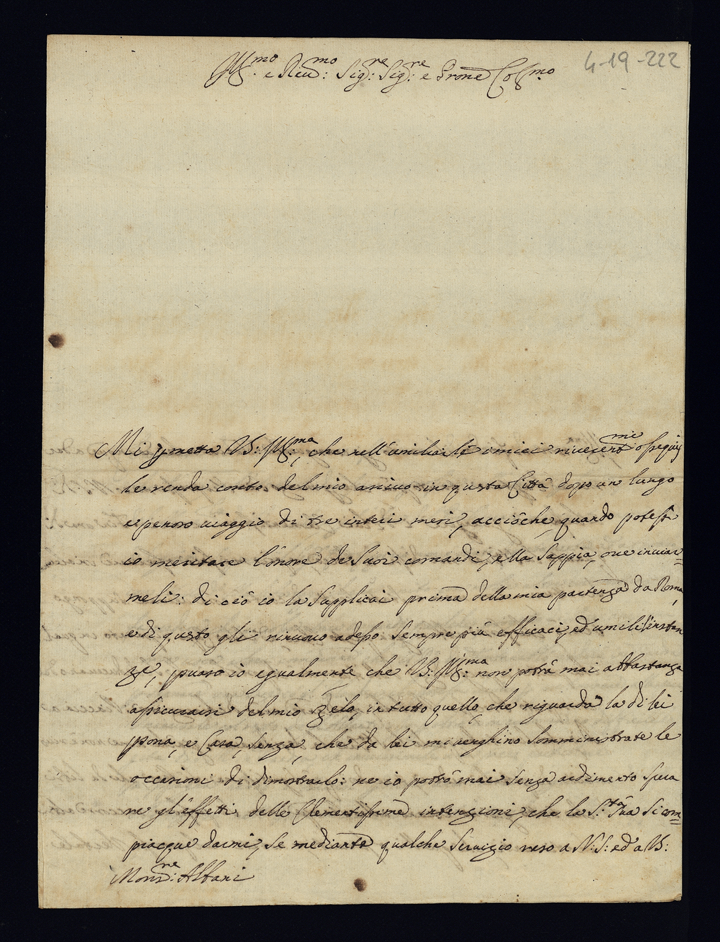 4-19-222
Ill:mo e Reu:mo Sig:re Sig:re e Prone Col:mo
Mi permetta V: Ill:ma, che nell'umiliarLe i miei riuerent:mi ossequij
le renda conto del mio arriuo in questa Città dopo un lungo
e penoso uiaggio di tre interi mesi, acciòche quando potessi
io meritare l'onore de Suoi comandi, ella Sappia, oue inuiar=
meli: di ciò io la Supplicai prima della mia partenza da Roma,
e di questo gli rinuouo adesso Sempre più efficaci, ed umili instan
ze, io egualmente che V: Ill:ma non potrà mai abbastanza
assicurarsi del mio Zelo, in tutto quello, che riguarda la di lei
Psona, e Casa, Senza, che da lei mi uenghino Somministrate le
occasioni di dimostrarlo: ne io potrò mai Senza ardimento Spera
re gl'effetti delle Clementissime intenzioni, che la S.tà Sua Si com=
piacque darmi, Se mediante qualche Seruizio reso a N: S: ed' a V:
Mons:re Albani